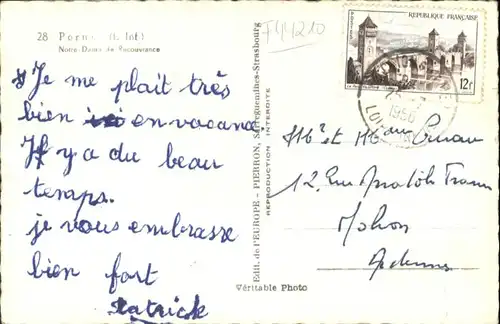 28 Pornic (L. Inf.)
Notre-Dame de Recouvrance
T44210
Je me plait très
bien en vacance
Il y a du beau
temps.
je vous embrasse
bien fort
Patrick
Edit. de l'EUROPE - PIERRON, Sarreguemines-Strasbourg
REPRODUCTION INTERDITE
Véritable Photo
RÉPUBLIQUE FRANÇAISE
POSTES
12f
1956
Mr et Mme
12, Rue Anatole France
Mohon
Ardennes